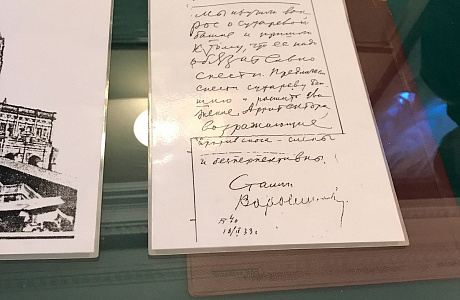 Мы изучили воп
рос о Сухаревой
башне и пришли
к тому, что ее надо
обязательно
снести. Предлагаем
снести Сухареву баш
ню и расширить дви
жение. Архитектора
возражающие
против сноса - слепы
и бесперспективны.
Сталин
Ворошилов